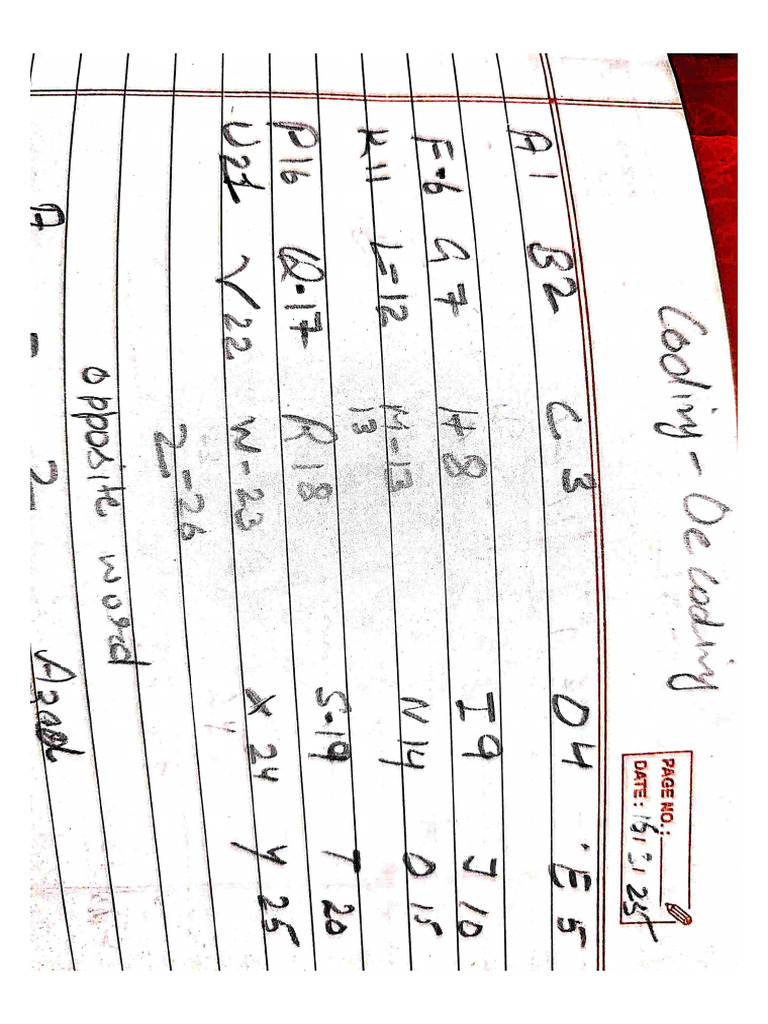 PAGE NO.:
DATE:
Coding - Decoding
A 1 B2 C 3 D4 E 5
F-6 G 7 H 8 I 9 J 10
K 11 L-12 M-13 N 14 O 15
13
P 16 Q.17 R 18 S.19 T 20
U 21 V 22 W-23 X 24 Y 25
Z-26
opposite word
A - Z Azad